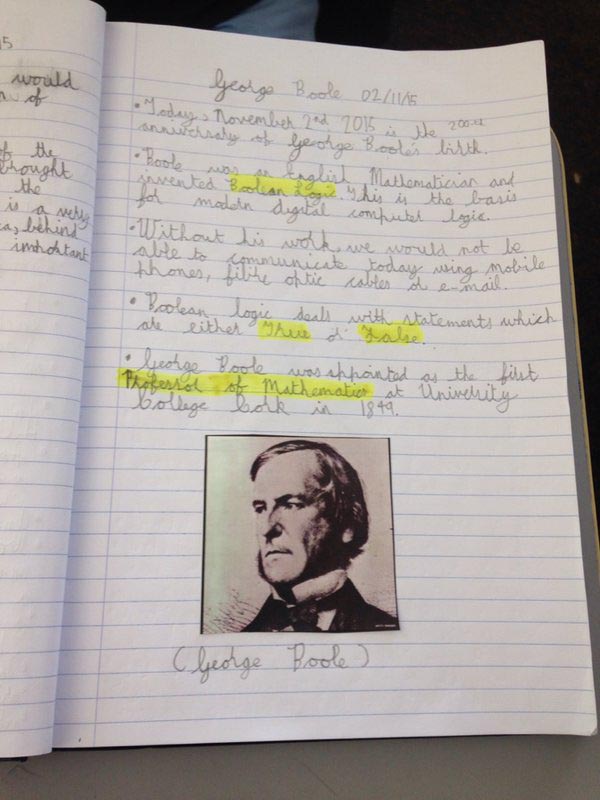 15
would
of
of the
brought
the
is a very
behind
important
George Boole 02/11/15
• Today, November 2nd 2015 is the 200th
anniversary of George Boole's birth.
• Boole was an English Mathematician and
invented Boolean Logic. This is the basis
for modern digital computer logic.
• Without his work, we would not be
able to communicate today using mobile
phones, fibre optic cables or e-mail.
• Boolean logic deals with statements which
are either True or False.
• George Boole was appointed as the first
Professor of Mathematics at University
College Cork in 1849.
(George Boole)